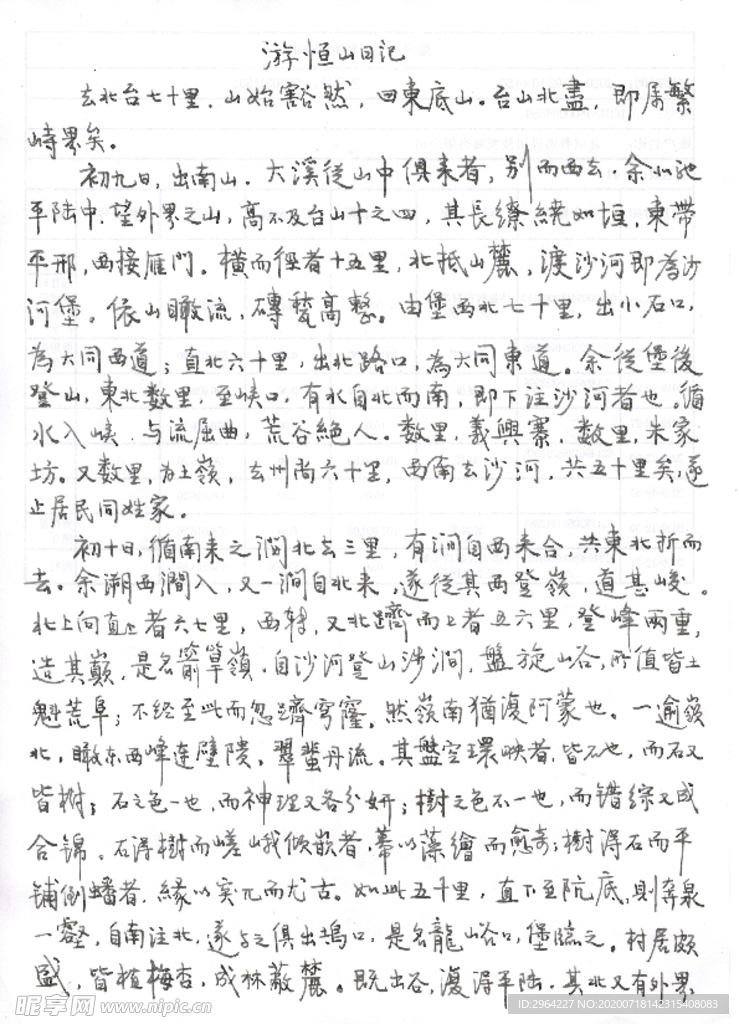 游恒山日记
去北台七十里，山始豁然，曰東底山。台山北盡，即属繁
峙界矣。
初九日，出南山。大溪従山中俱来者，别而西去。余北馳
平陆中，望外界之山，高不及台山十之四，其長繚繞如垣，東帶
平邢，西接雁門。橫而徑者十五里，北抵山麓，渡沙河即為沙
河堡。依山瞰流，磚甃高整。由堡西北七十里，出小石口，
為大同西道；直北六十里，出北路口，為大同東道。余従堡後
登山，東北数里，至峡口，有水自北而南，即下注沙河者也。循
水入峡，与流屈曲，荒谷絶人。数里，義興寨。数里，朱家
坊。又数里，为土嶺，去州尚六十里，西南去沙河，共五十里矣，遂
止居民同姓家。
初十日，循南来之澗北去三里，有澗自西来合，共東北折而
去。余溯西澗入，又一澗自北来，遂従其西登嶺，道甚峻。
北上向直上者六七里，西轉，又北躋而上者五六里，登峰兩重，
造其巔，是名箭筸嶺。自沙河登山涉澗，盤旋山谷，所值皆土
魁荒阜；不经至此而忽躋穹窿，然嶺南猶復阿蒙也。一逾嶺
北，瞰东西峰連壁隤，翠蜚丹流。其盤空環映者，皆石也，而石又
皆樹；石之色一也，而神理又各分妍；樹之色不一也，而错綜又成
合锦。石得樹而嵯峨倾嵌者，幕以藻繪而愈奇；樹得石而平
铺倒蟠者，緣以突兀而尤古。如此五十里，直下至阬底，則奔泉
一壑，自南注北，遂与之俱出塢口，是名龍峪口，堡臨之。村居頗
盛，皆植梅杏，成林蔽麓。既出谷，復得平陆。其北又有外界
昵享网 www.nipic.cn
ID:2964227 NO:20200718142315408083